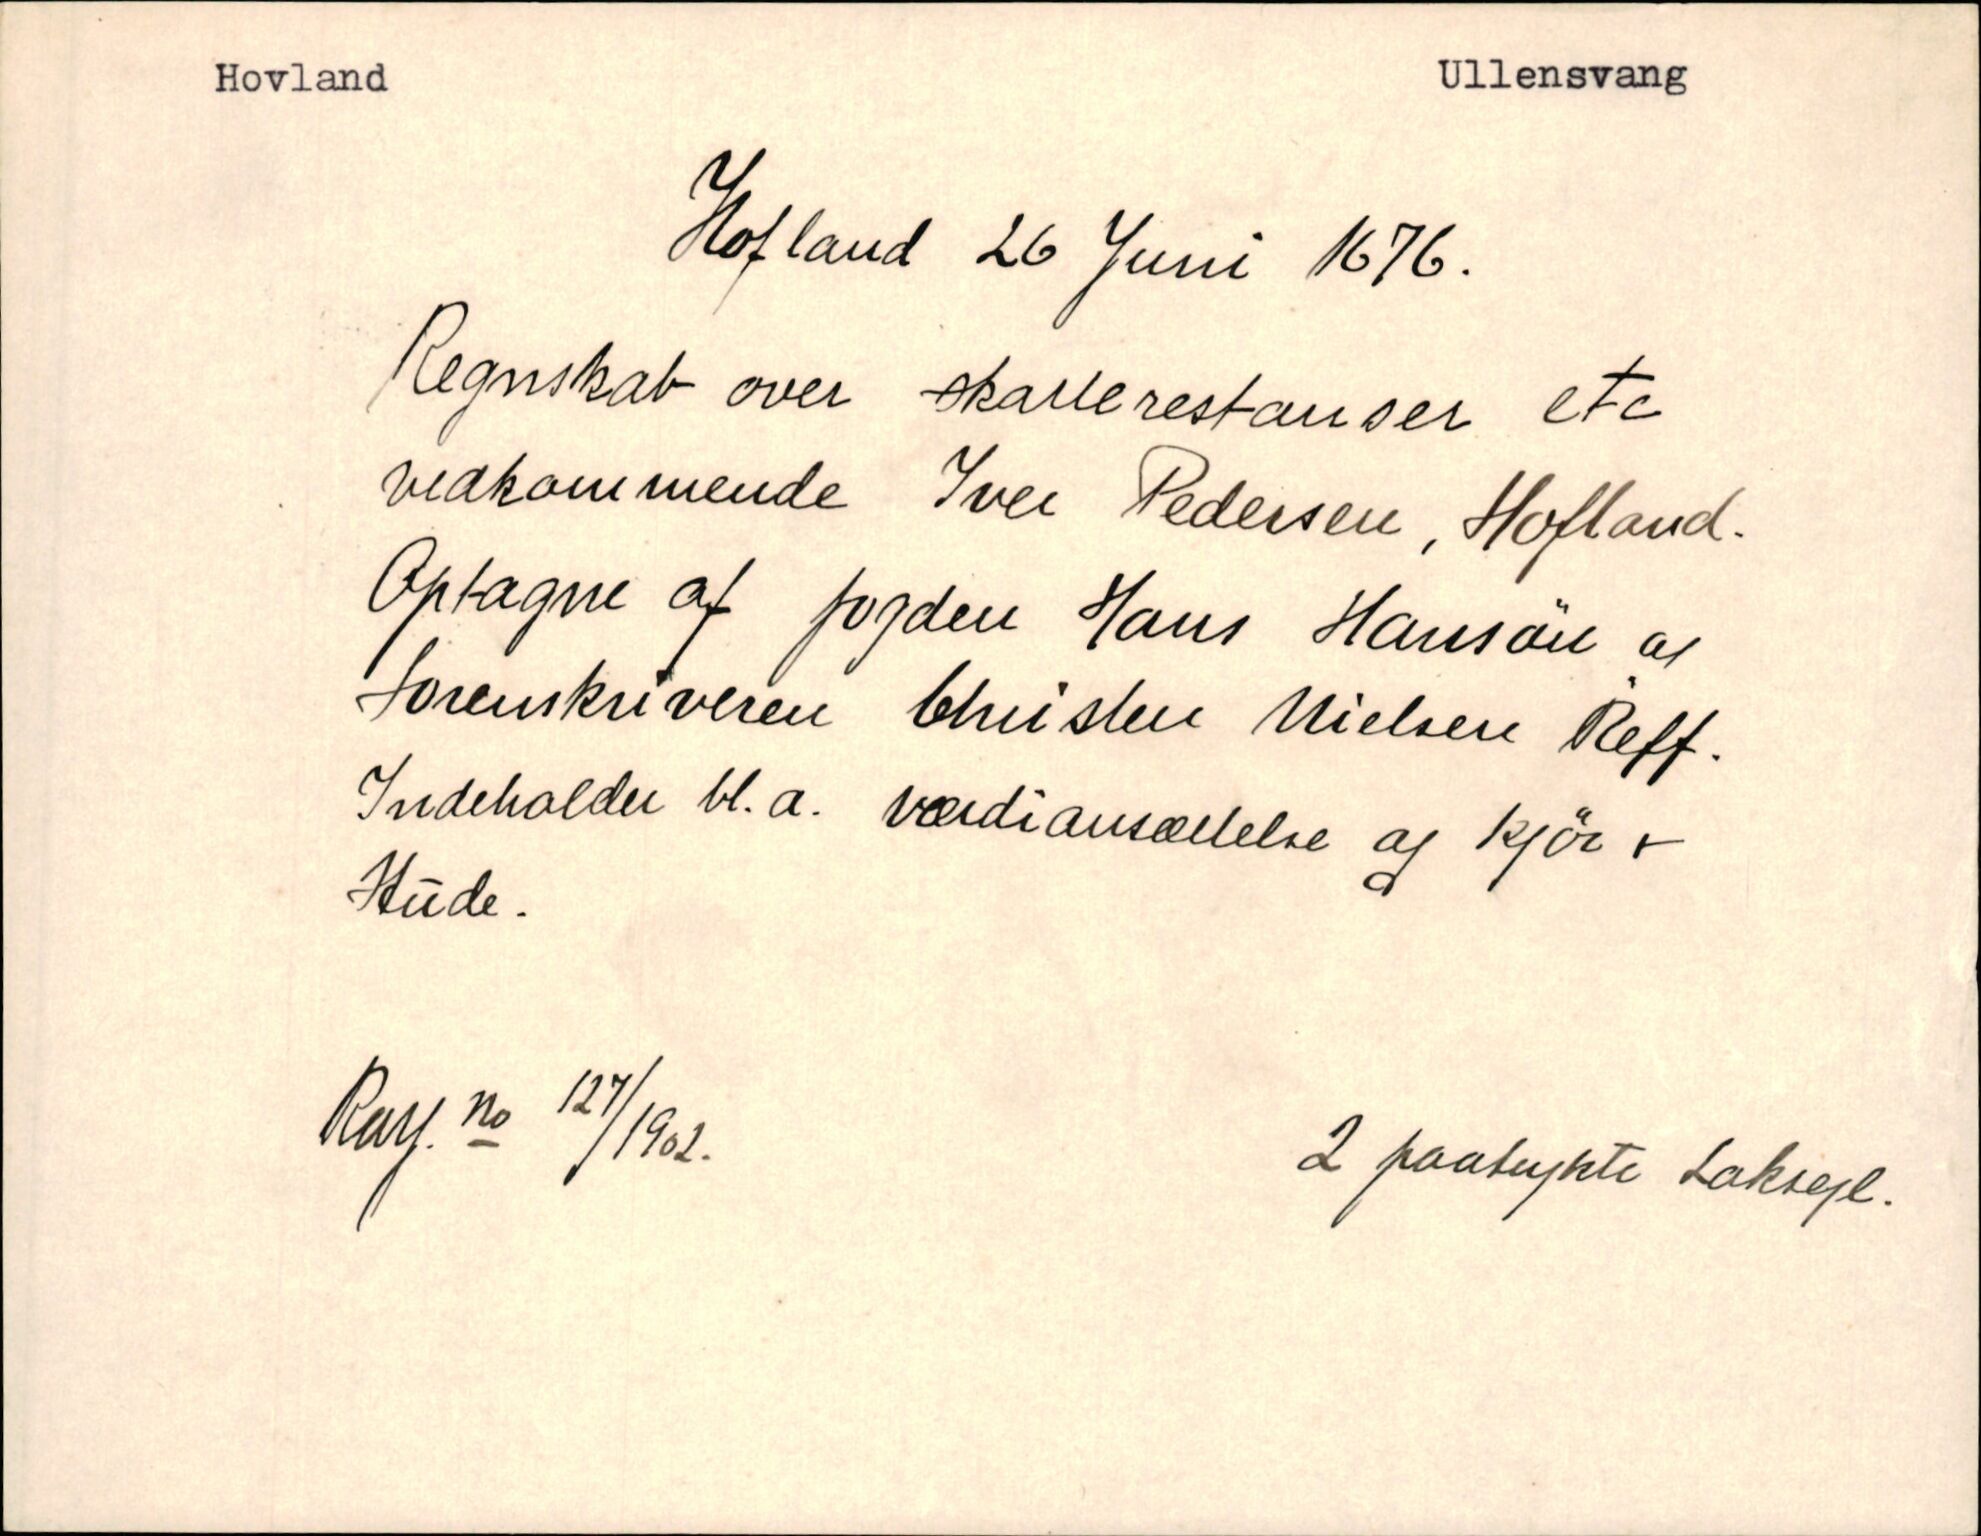 Hovland
Ullensvang
Hofland 26 Juni 1676.
Regnskab over skatterestanser etc
vedkommende Iver Pedersen, Hofland.
Optagne af fogden Hans Hansön og
Sorenskriveren Christen Nielsen Reff.
Indeholder bl. a. værdiansættelse af Kjör +
Stude.
No 127/1902.
2 paatrykte Laksegl.